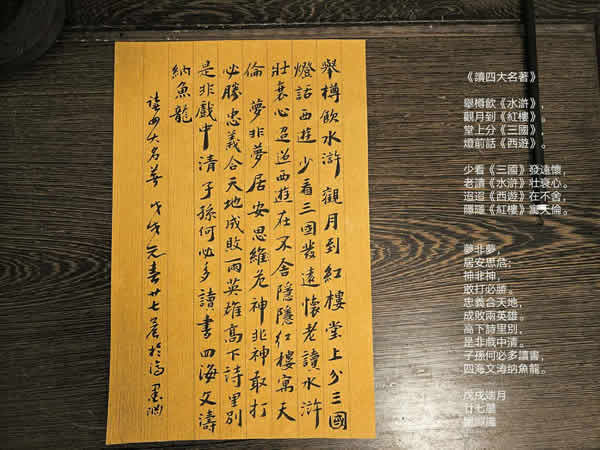 舉樽飲水滸觀月到紅樓堂上分三國
燈話西遊少看三國發遠懷老讀水滸
壯衰心迢迢西遊在不舍隱隱紅樓寓天
倫夢非夢居安思維危神非神敢打
必勝忠義合天地成敗兩英雄高下詩里別
是非戲中清子孫何必多讀書四海文濤
納魚龍
讀四大名著 戊戌元春廿七晨於
《讀四大名著》
舉樽飲《水滸》,
觀月到《紅樓》,
堂上分《三國》,
燈前話《西遊》。
少看《三國》發遠懷,
老讀《水滸》壯衰心。
迢迢《西遊》在不舍,
隱隱《紅樓》寓天倫。
夢非夢,
居安思危;
神非神,
敢打必勝。
忠義合天地,
成敗兩英雄。
高下詩里別,
是非戲中清。
子孫何必多讀書,
四海文涛纳魚龍。
戊戌端月
廿七晨